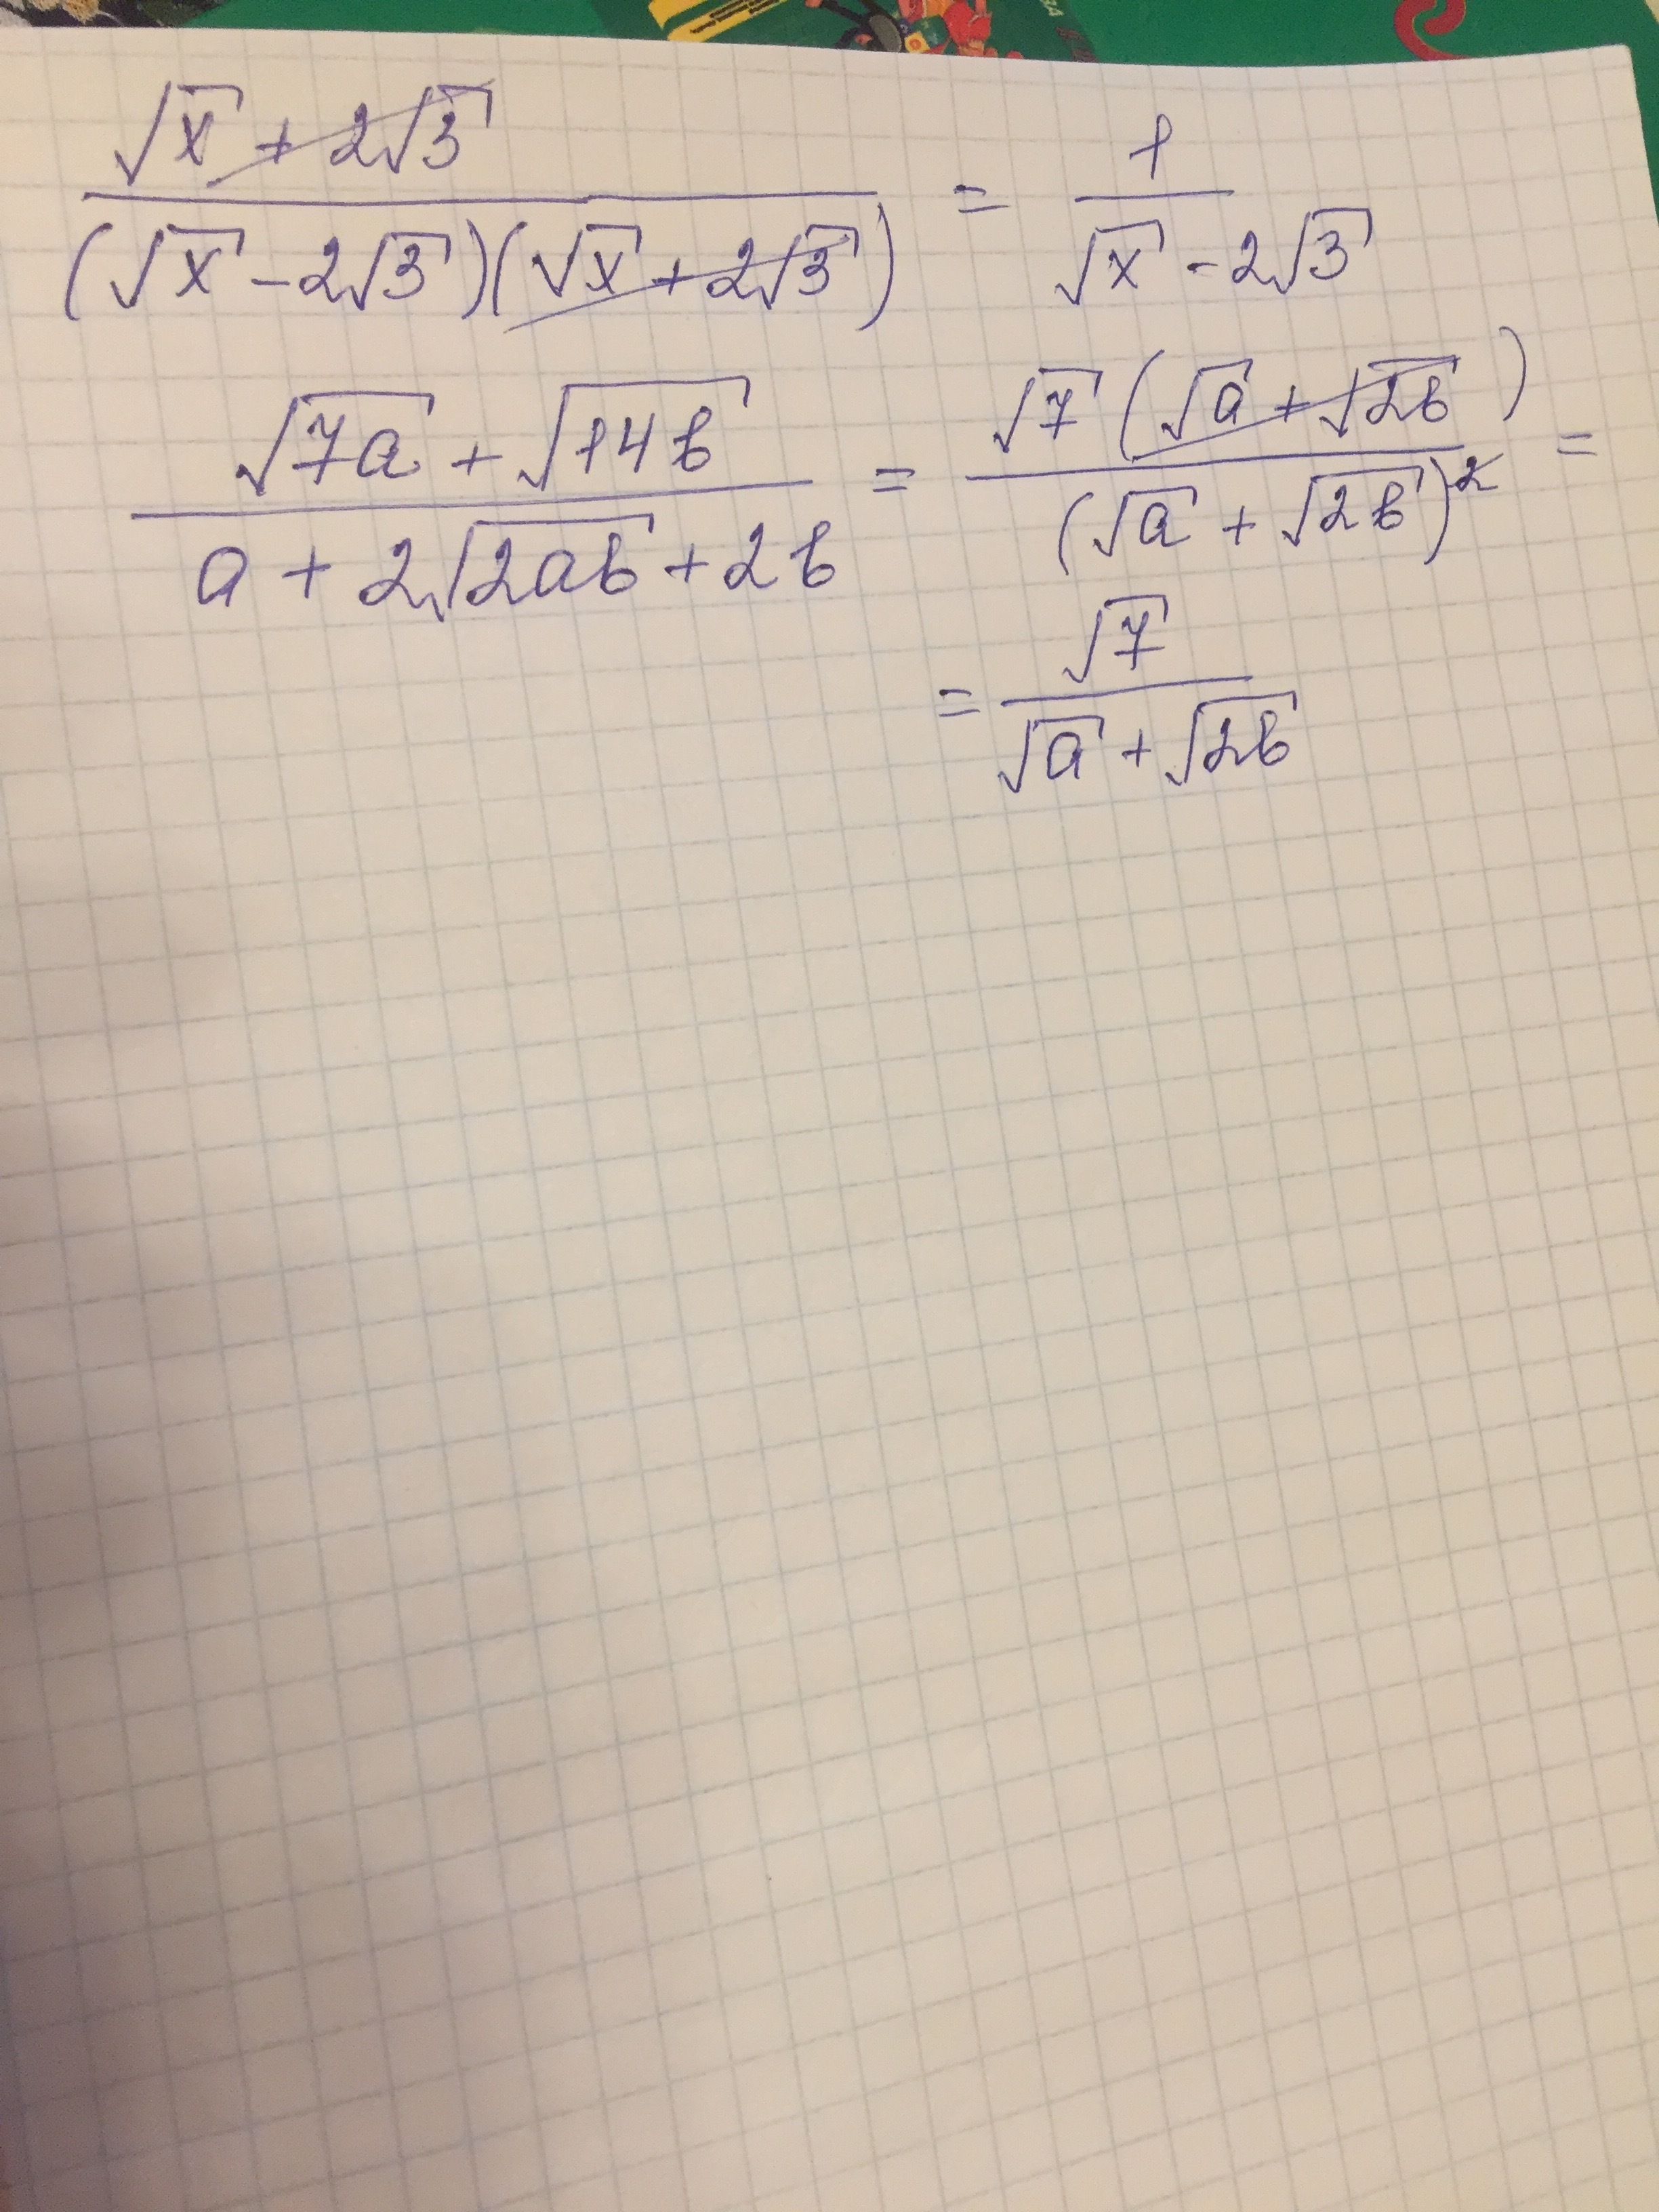 (√x + 2√3) / ((√x - 2√3)(√x + 2√3)) = 1 / (√x - 2√3)
(√(7a) + √(14b)) / (a + 2√(2ab) + 2b) = √7(√a + √(2b)) / (√a + √(2b))² =
= √7 / (√a + √(2b))